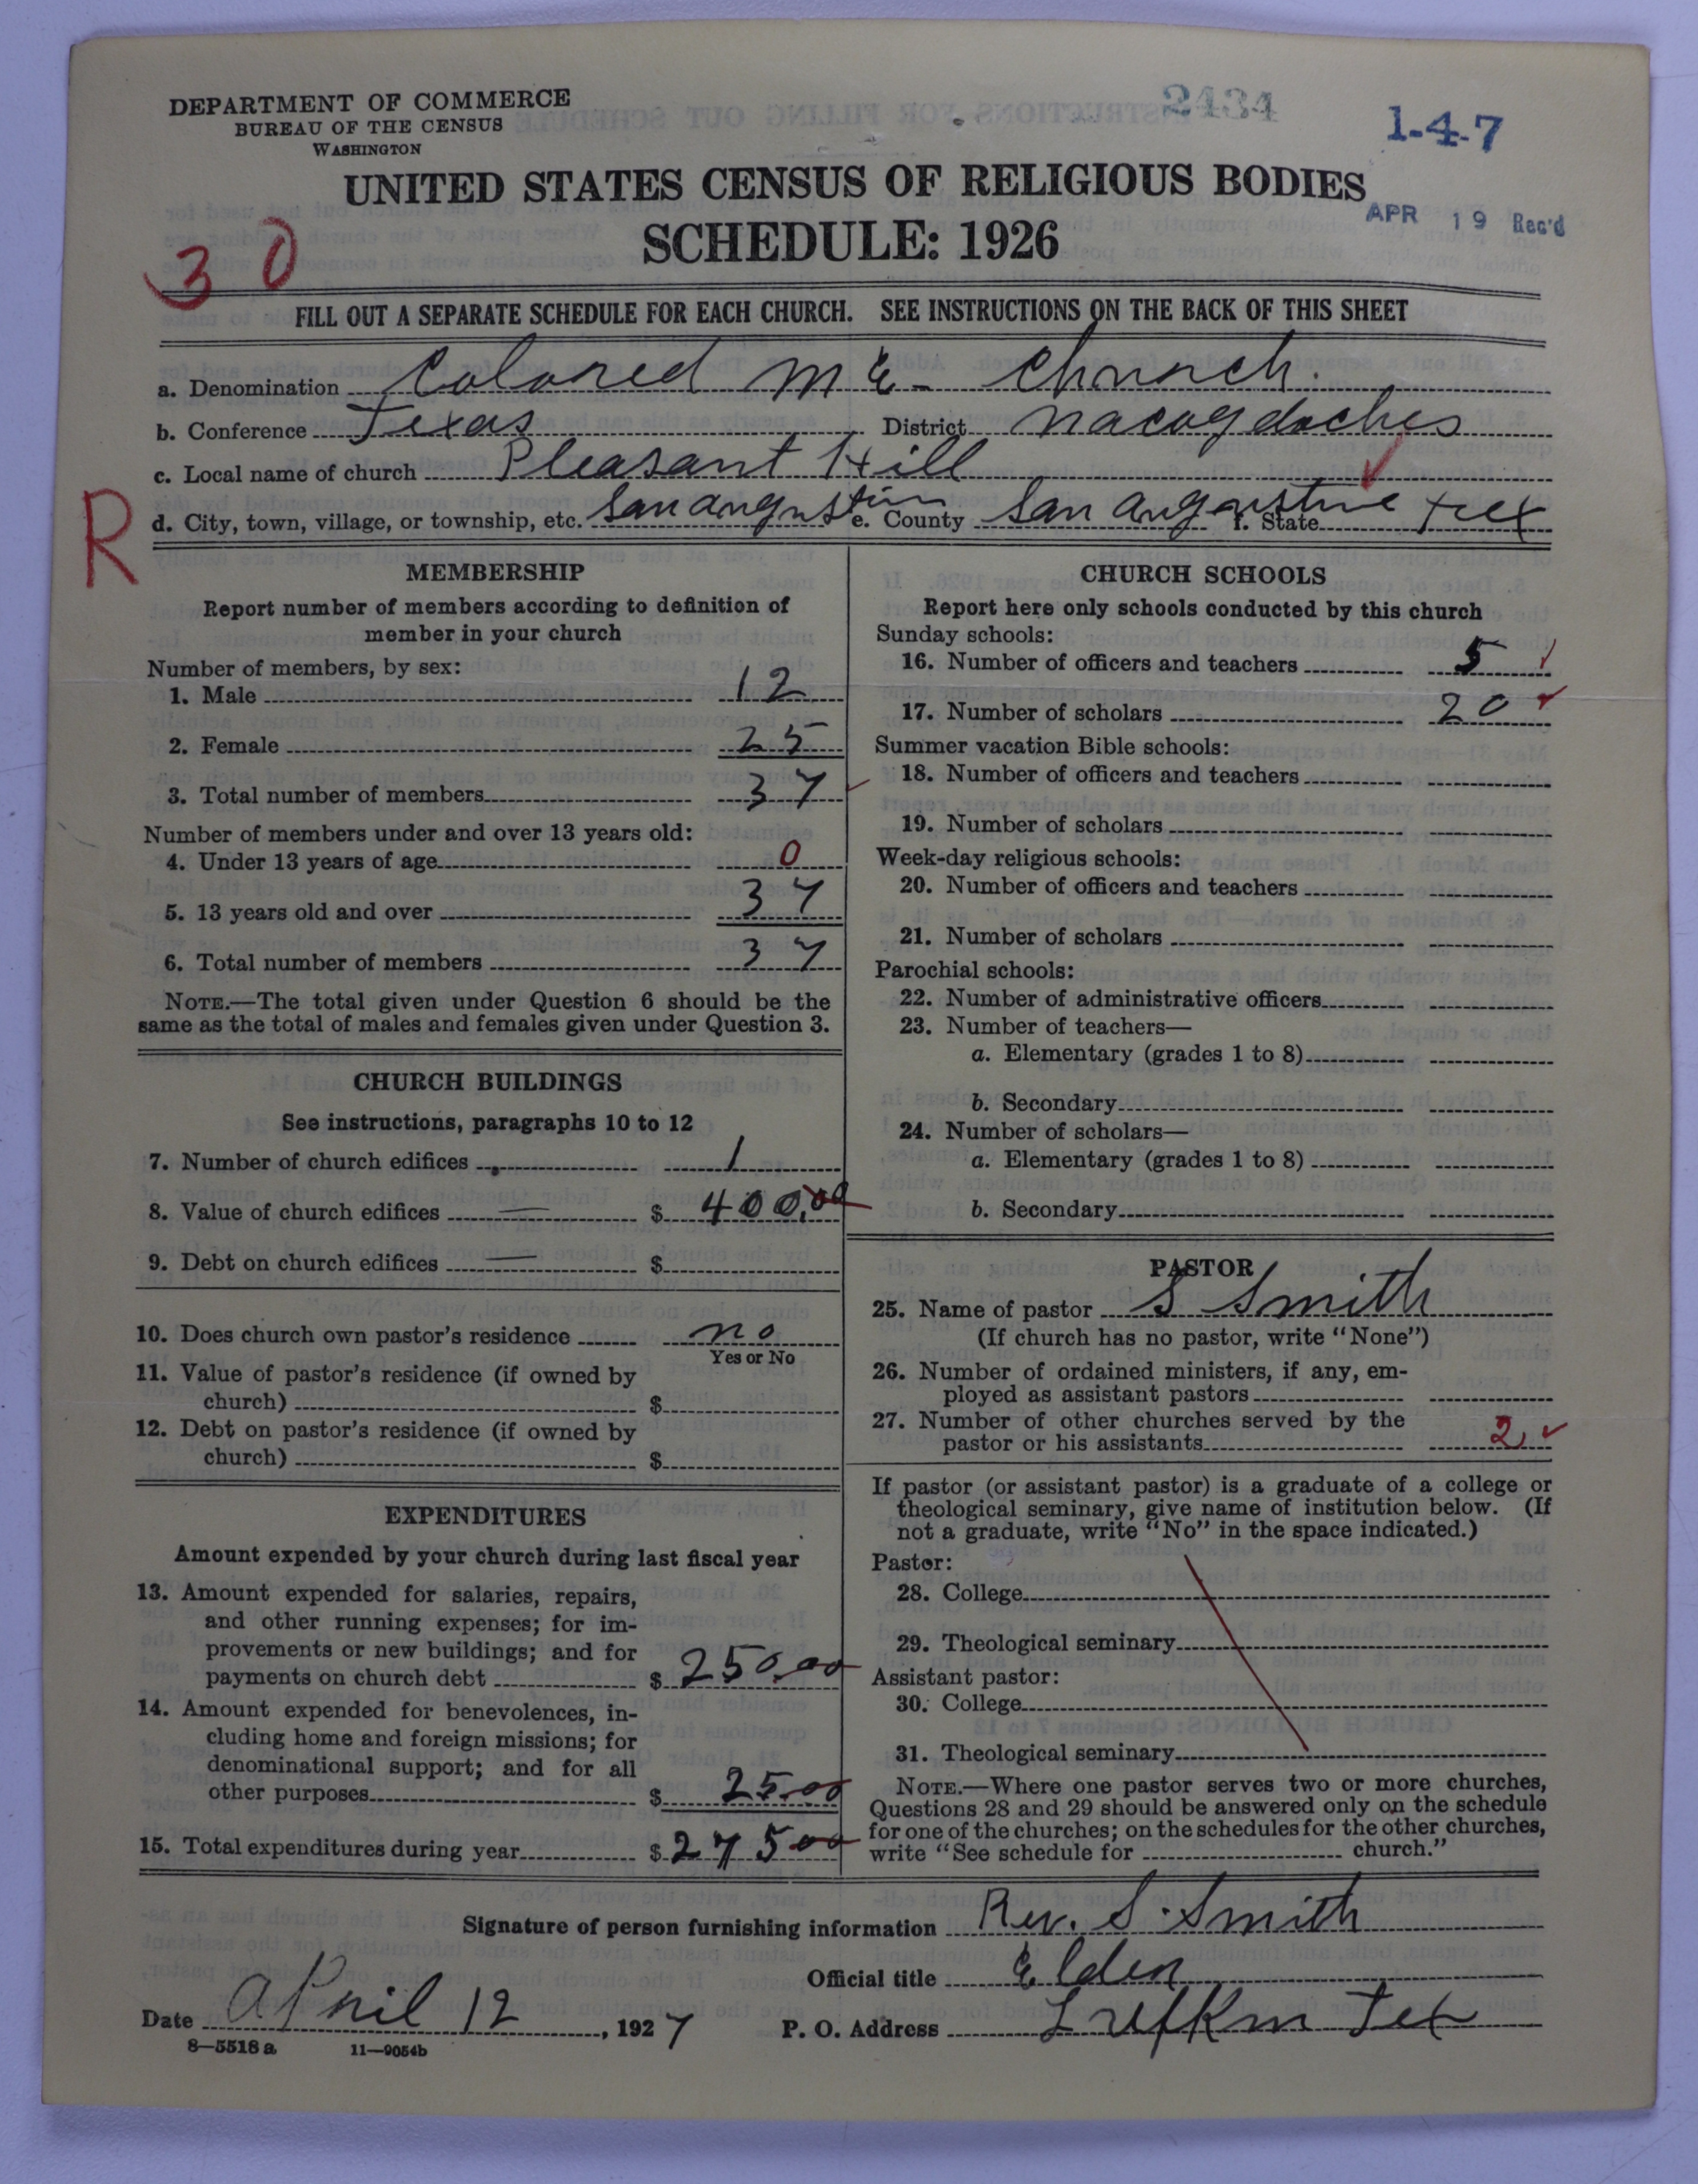 DEPARTMENT OF COMMERCE
BUREAU OF THE CENSUS
WASHINGTON
2434
1-4-7
UNITED STATES CENSUS OF RELIGIOUS BODIES
SCHEDULE: 1926
APR 19 Rec'd
30
FILL OUT A SEPARATE SCHEDULE FOR EACH CHURCH. SEE INSTRUCTIONS ON THE BACK OF THIS SHEET
a. Denomination Colored M E- Church.
b. Conference Texas District Nacogdoches
c. Local name of church Pleasant Hill
R
d. City, town, village, or township, etc. San angustin e. County San Augustine f. State Tex
MEMBERSHIP
Report number of members according to definition of
member in your church
Number of members, by sex:
1. Male 12
2. Female 25
3. Total number of members 37
Number of members under and over 13 years old:
4. Under 13 years of age 0
5. 13 years old and over 37
6. Total number of members 37
NOTE.—The total given under Question 6 should be the
same as the total of males and females given under Question 3.
CHURCH BUILDINGS
See instructions, paragraphs 10 to 12
7. Number of church edifices 1
8. Value of church edifices $ 400.00
9. Debt on church edifices $
10. Does church own pastor's residence no
Yes or No
11. Value of pastor's residence (if owned by
church) $
12. Debt on pastor's residence (if owned by
church) $
EXPENDITURES
Amount expended by your church during last fiscal year
13. Amount expended for salaries, repairs,
and other running expenses; for im-
provements or new buildings; and for
payments on church debt $ 250.00
14. Amount expended for benevolences, in-
cluding home and foreign missions; for
denominational support; and for all
other purposes $ 25.00
15. Total expenditures during year $ 275 00
CHURCH SCHOOLS
Report here only schools conducted by this church
Sunday schools:
16. Number of officers and teachers 5
17. Number of scholars 20
Summer vacation Bible schools:
18. Number of officers and teachers
19. Number of scholars
Week-day religious schools:
20. Number of officers and teachers
21. Number of scholars
Parochial schools:
22. Number of administrative officers
23. Number of teachers—
a. Elementary (grades 1 to 8)
b. Secondary
24. Number of scholars—
a. Elementary (grades 1 to 8)
b. Secondary
PASTOR
25. Name of pastor S Smith
(If church has no pastor, write "None")
26. Number of ordained ministers, if any, em-
ployed as assistant pastors
27. Number of other churches served by the
pastor or his assistants 2
If pastor (or assistant pastor) is a graduate of a college or
theological seminary, give name of institution below. (If
not a graduate, write "No" in the space indicated.)
Pastor:
28. College
29. Theological seminary
Assistant pastor:
30. College
31. Theological seminary
NOTE.—Where one pastor serves two or more churches,
Questions 28 and 29 should be answered only on the schedule
for one of the churches; on the schedules for the other churches,
write "See schedule for church."
Signature of person furnishing information Rev. S. Smith
Official title Elder
Date April 12, 1927 P. O. Address Lufkin Tex
8—5518 a 11—9054b